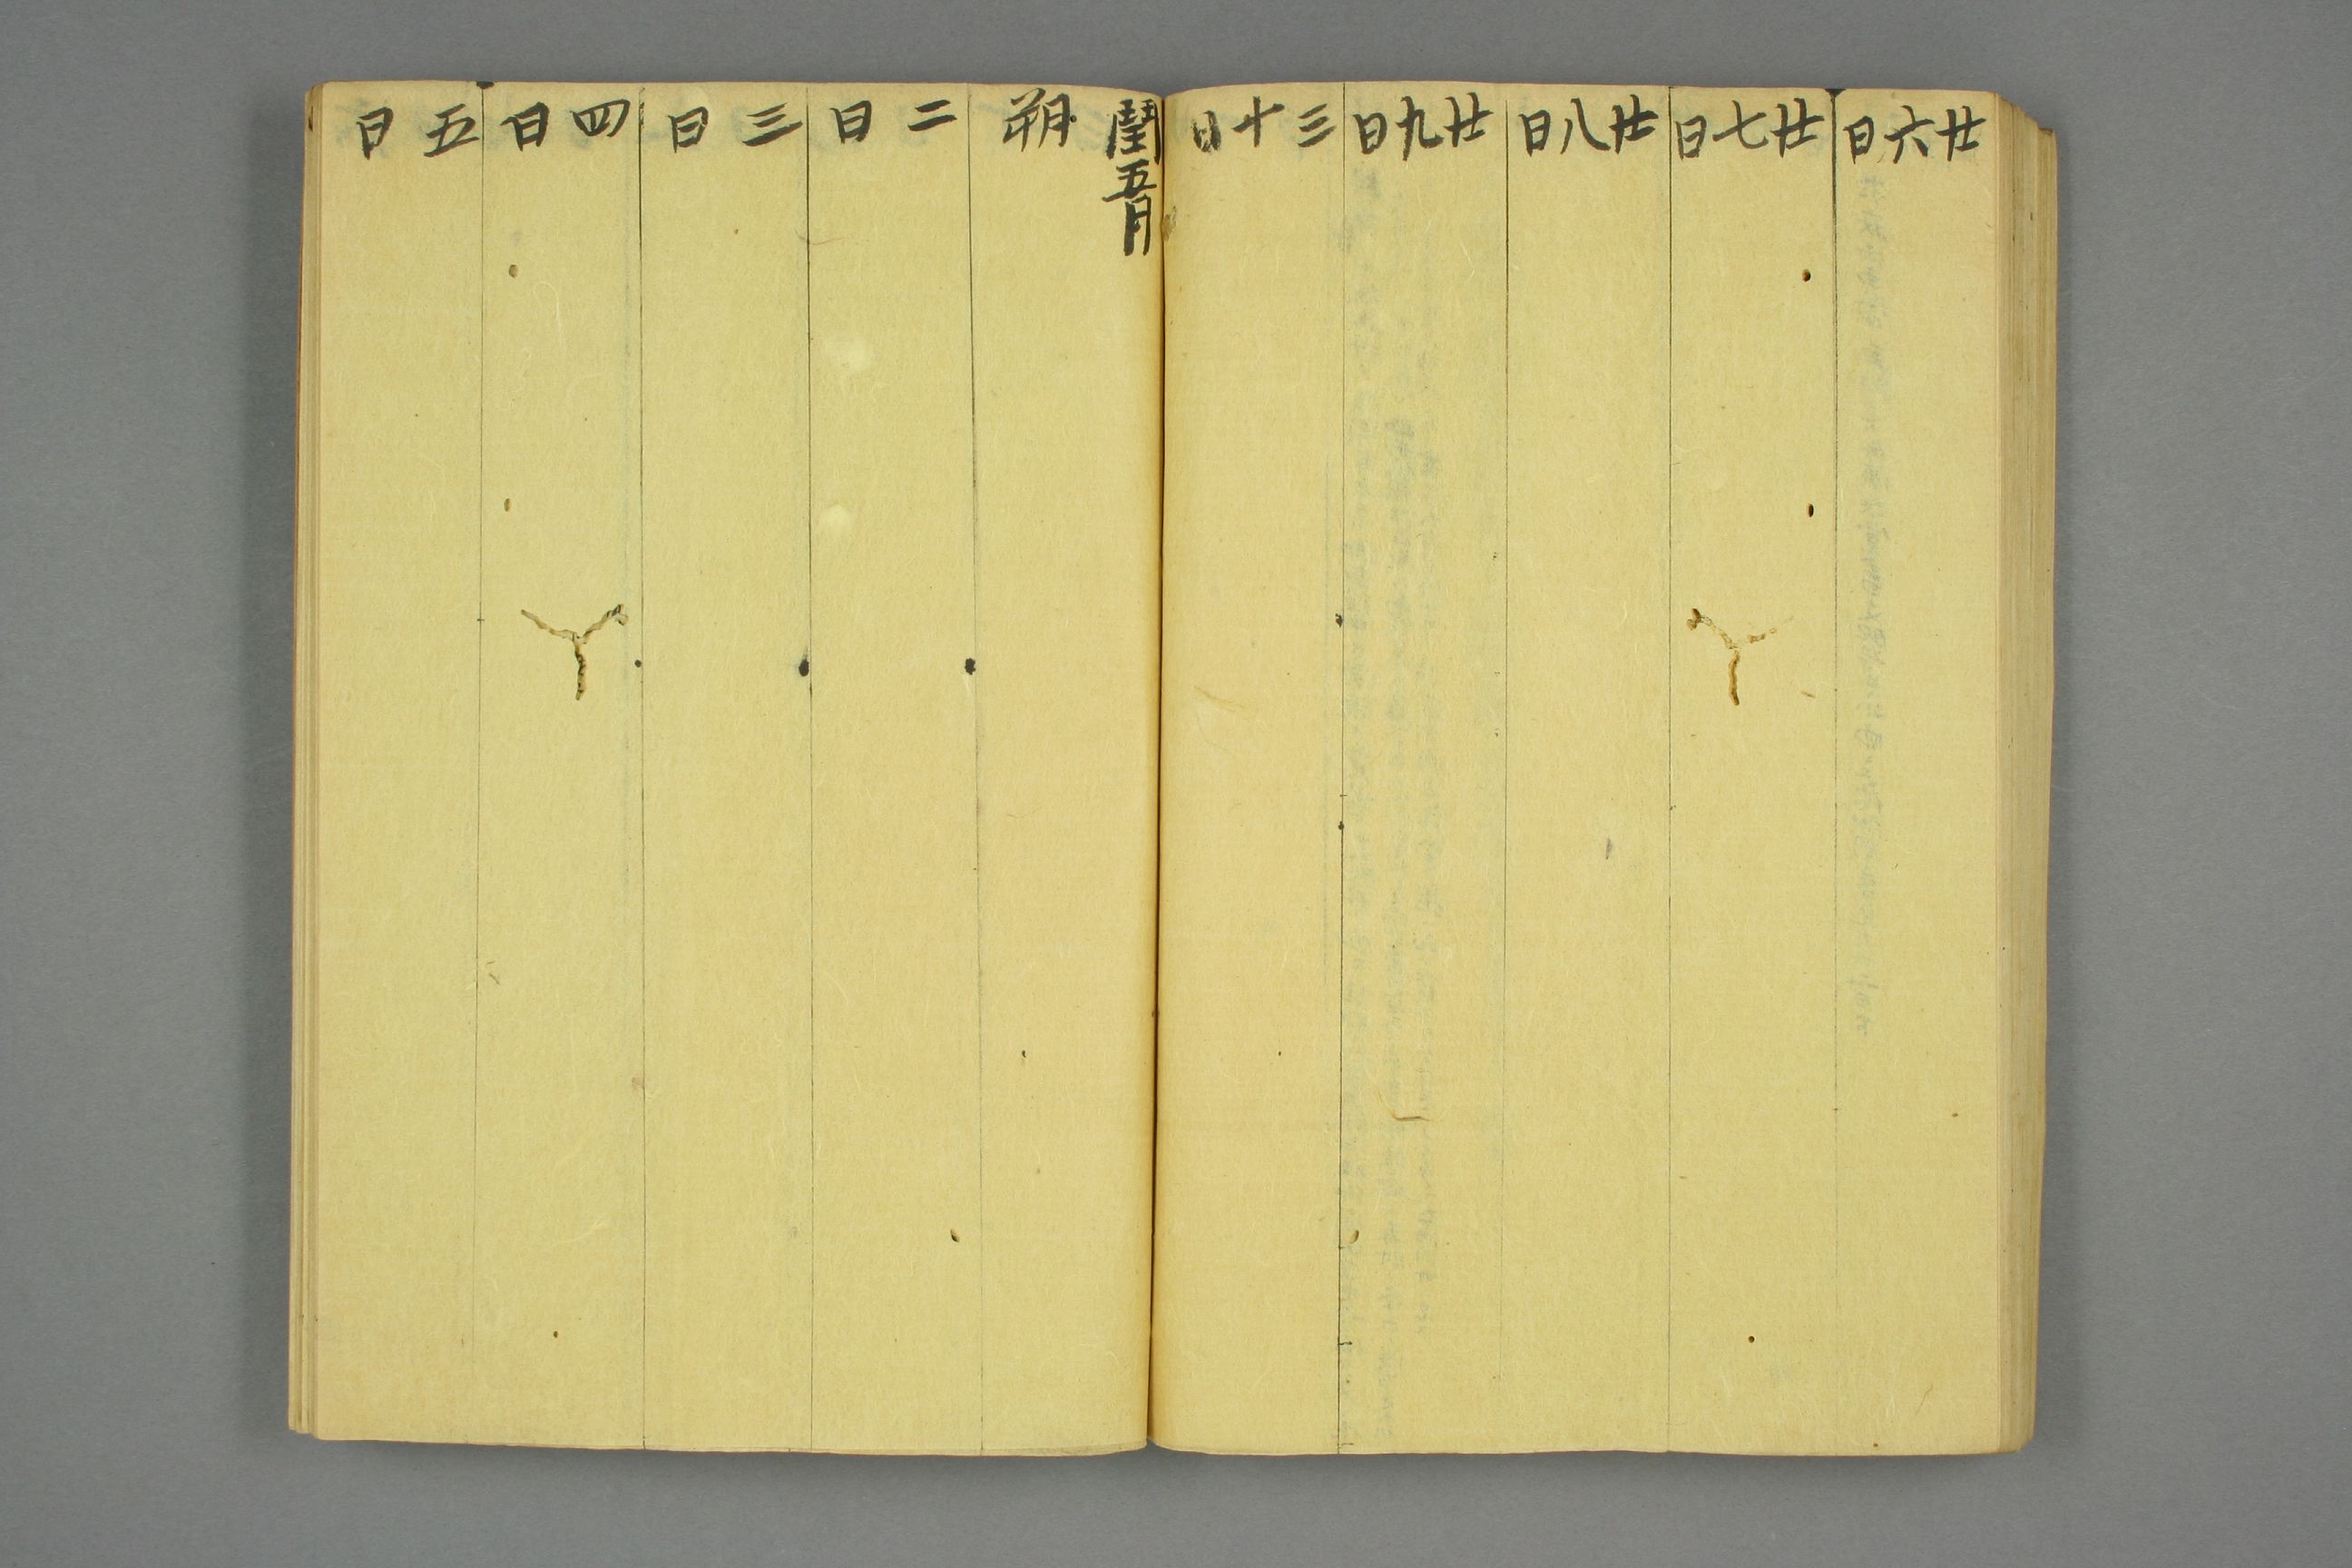 廿六日
廿七日
廿八日
廿九日
三十日
閏五月
朔
二日
三日
四日
五日